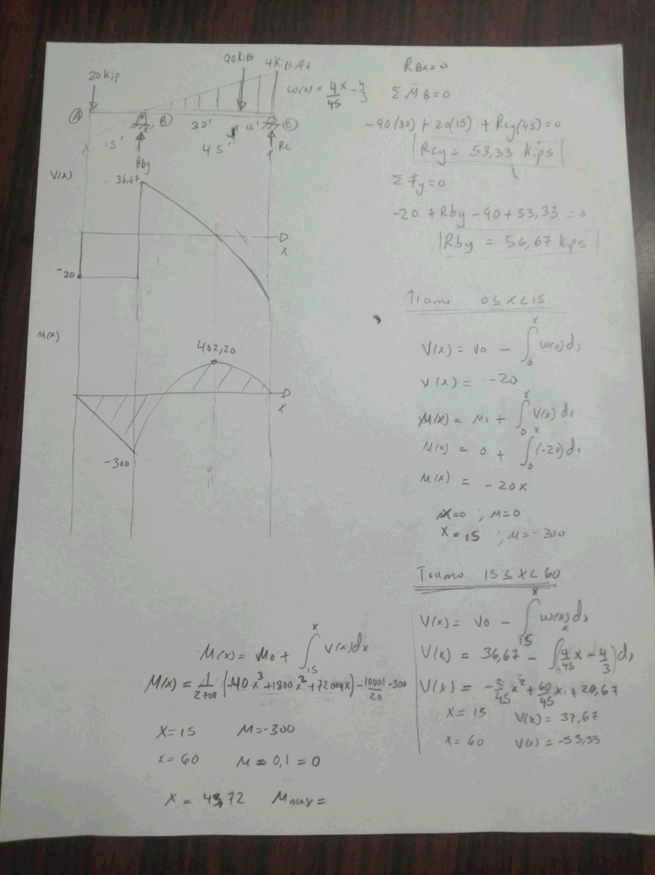 20 kip
90 kip
4 kip/ft
w(x) = 4x/45 - 4/3
A
B
C
15'
30'
15'
45'
Rby
Rc
V(x)
36,67
-20
x
M(x)
402,20
x
-300
RBx = 0
Σ M B = 0
-90(30) + 20(15) + Rcy(45) = 0
Rcy = 53,33 kips
Σ Fy = 0
-20 + Rby - 90 + 53,33 = 0
Rby = 56,67 kips
Tramo 0 ≤ x < 15
V(x) = V0 - ∫₀ˣ w(x) dx
V(x) = -20
M(x) = M0 + ∫₀ˣ V(x) dx
M(x) = 0 + ∫₀ˣ (-20) dx
M(x) = -20x
x=0 ; M=0
x=15 ; M=-300
Tramo 15 ≤ x < 60
V(x) = V0 - ∫₁₅ˣ w(x) dx
V(x) = 36,67 - ∫₁₅ˣ (4/45 x - 4/3) dx
V(x) = -2/45 x² + 60/45 x + 20,67
x = 15 V(x) = 37,67
x = 60 V(x) = -53,33
M(x) = M0 + ∫₁₅ˣ V(x) dx
M(x) = 1/2700 (-40x³ + 1800x² + 72009x) - 10001/20 - 300
x = 15 M = -300
x = 60 M = 0,1 = 0
x = 43,72 Mmax =